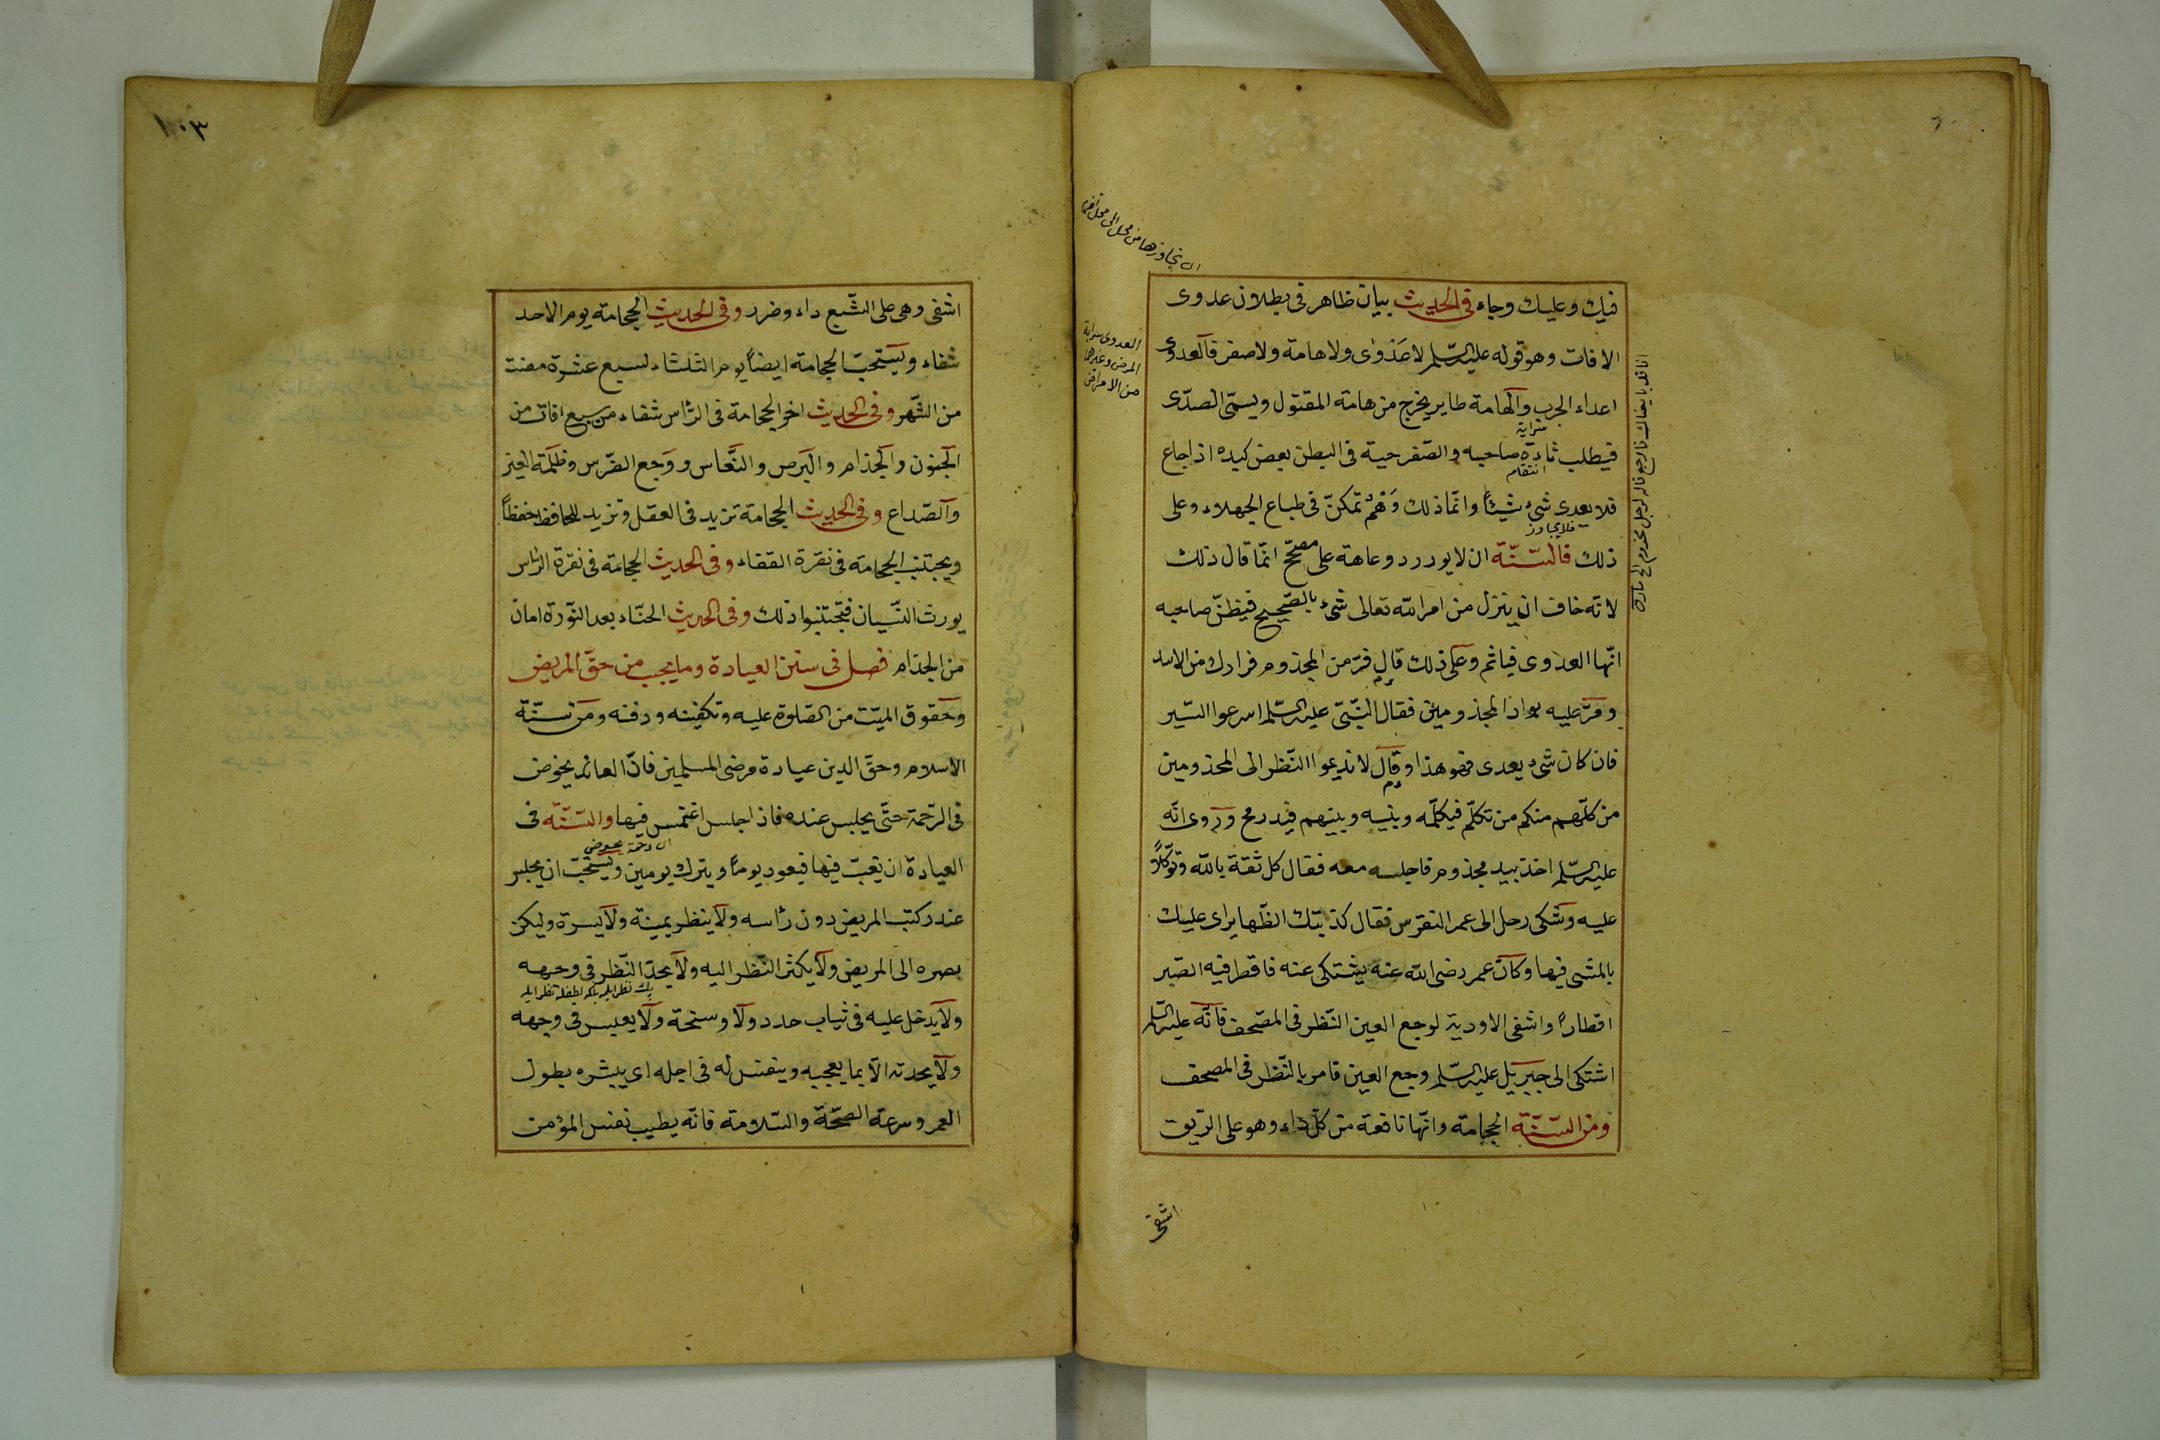 فيك وعليك وجاء فى الحديث بيان ظاهر فى بطلان عدوى
الافات وهو قوله عليه السّلم لا عَدْوٰى ولا هامة ولا صفر فالعدوى
اعداء الجرب والهامة طاير يخرج من هامة المقتول ويسمّى الصدّى
فيطلب ثاره صاحبه والصّفر حية فى البطن يعض كبده اذا جاع
انتقام
فلا يعدى شئ شيئًا وانّما ذلك وَهْمٌ تمكنّ فى طباع الجهلاء وعلى
فلا يجاوز
ذلك فالسّنّة ان لا يورد ذو عاهة على مصحّ انّما قال ذلك
لانّه خاف ان ينزل من امر الله تعالى شئ بالصّحيح فيظنّ صاحبه
انّها العدوى فياثم وعلى ذلك قال فرّ من المجذوم فرارك من الاسد
ومرّ عليه بواد المجذومين فقال النّبىّ عليه السّلم اسرعوا السّير
فان كان شئ يعدى فهو هذا وقال لا تديموا النّظر الى المجذومين
من كلّهم منكم من تكلّم فيكلّمه وبينه وبينهم قيد رمح وروى انّه
عليه السّلم اخذ بيد مجذوم فاجلسه معه فقال كل ثقة بالله وتوكّلاً
عليه وشكى رجل الى عمر النقرس فقال كذبتك الظّهاير اى عليك
بالمشى فيها وكان عمر رضى الله عنه يشتكى عنه فاقطر فيه الصّبر
اقطارًا واشفى الاودية لوجع العين النّظر فى المصحف فانّه عليه السّلم
اشتكى الى جبريل عليه السّلم وجع العين فامر بالنّظر فى المصحف
ومن السّنّة الحجامة وانّها نافعة من كلّ داء وهو على الرّيق
اشفى
العدوى سراية
المرض وغيرها
من الامراض
١٠٣
اشفى وهى على الشّبع داء وضرر وفى الحديث الحجامة يوم الاحد
شفاء ويستحبّ الحجامة ايضاً يوم الثلثاء لسبع عشرة مضت
من الشّهر وفى الحديث اخر الحجامة فى الرّأس شفاء من سبع افات من
الجنون والجذام والبرص والنّعاس ووجع الضّرس وظلمة العين
والصّداع وفى الحديث الحجامة تزيد فى العقل وتزيد للحافظ حفظاً
ويجتنب الحجامة فى نقرة القفاء وفى الحديث الحجامة فى نقرة الرّأس
يورث النّسيان فتجتنبوا ذلك وفى الحديث الحنّاء بعد النّورة امان
من الجذام فصل فى سنن العيادة وما يجب من حقّ المريض
وحقوق الميّت من الصّلوة عليه وتكفينه ودفنه ومن سنّة
الاسلام وحقّ الدين عيادة مرضى المسلمين فانّ العائد يخوض
فى الرّحمة حتّى يجلس عنده فاذا جلس اغتمس فيها والسّنّة فى
العيادة ان تغبّ فيها فيعود يوماً ويترك يومين ويستحبّ ان يجلس
عند ركبت المريض دون رأسه ولا ينظر يمينة ولا يسرة وليكن
بصره الى المريض ولا يكثر النّظر اليه ولا يحدّ النّظر فى وجهه
ولا يدخل عليه فى ثياب حدد ولا وسخة ولا يعبس فى وجهه
ولا يحدثه الّا بما يعجبه وينفّس له فى اجله اى يبشره بطول
العمر وسرعة الصحّة والسّلامة فانّه يطيب نفس المؤمن